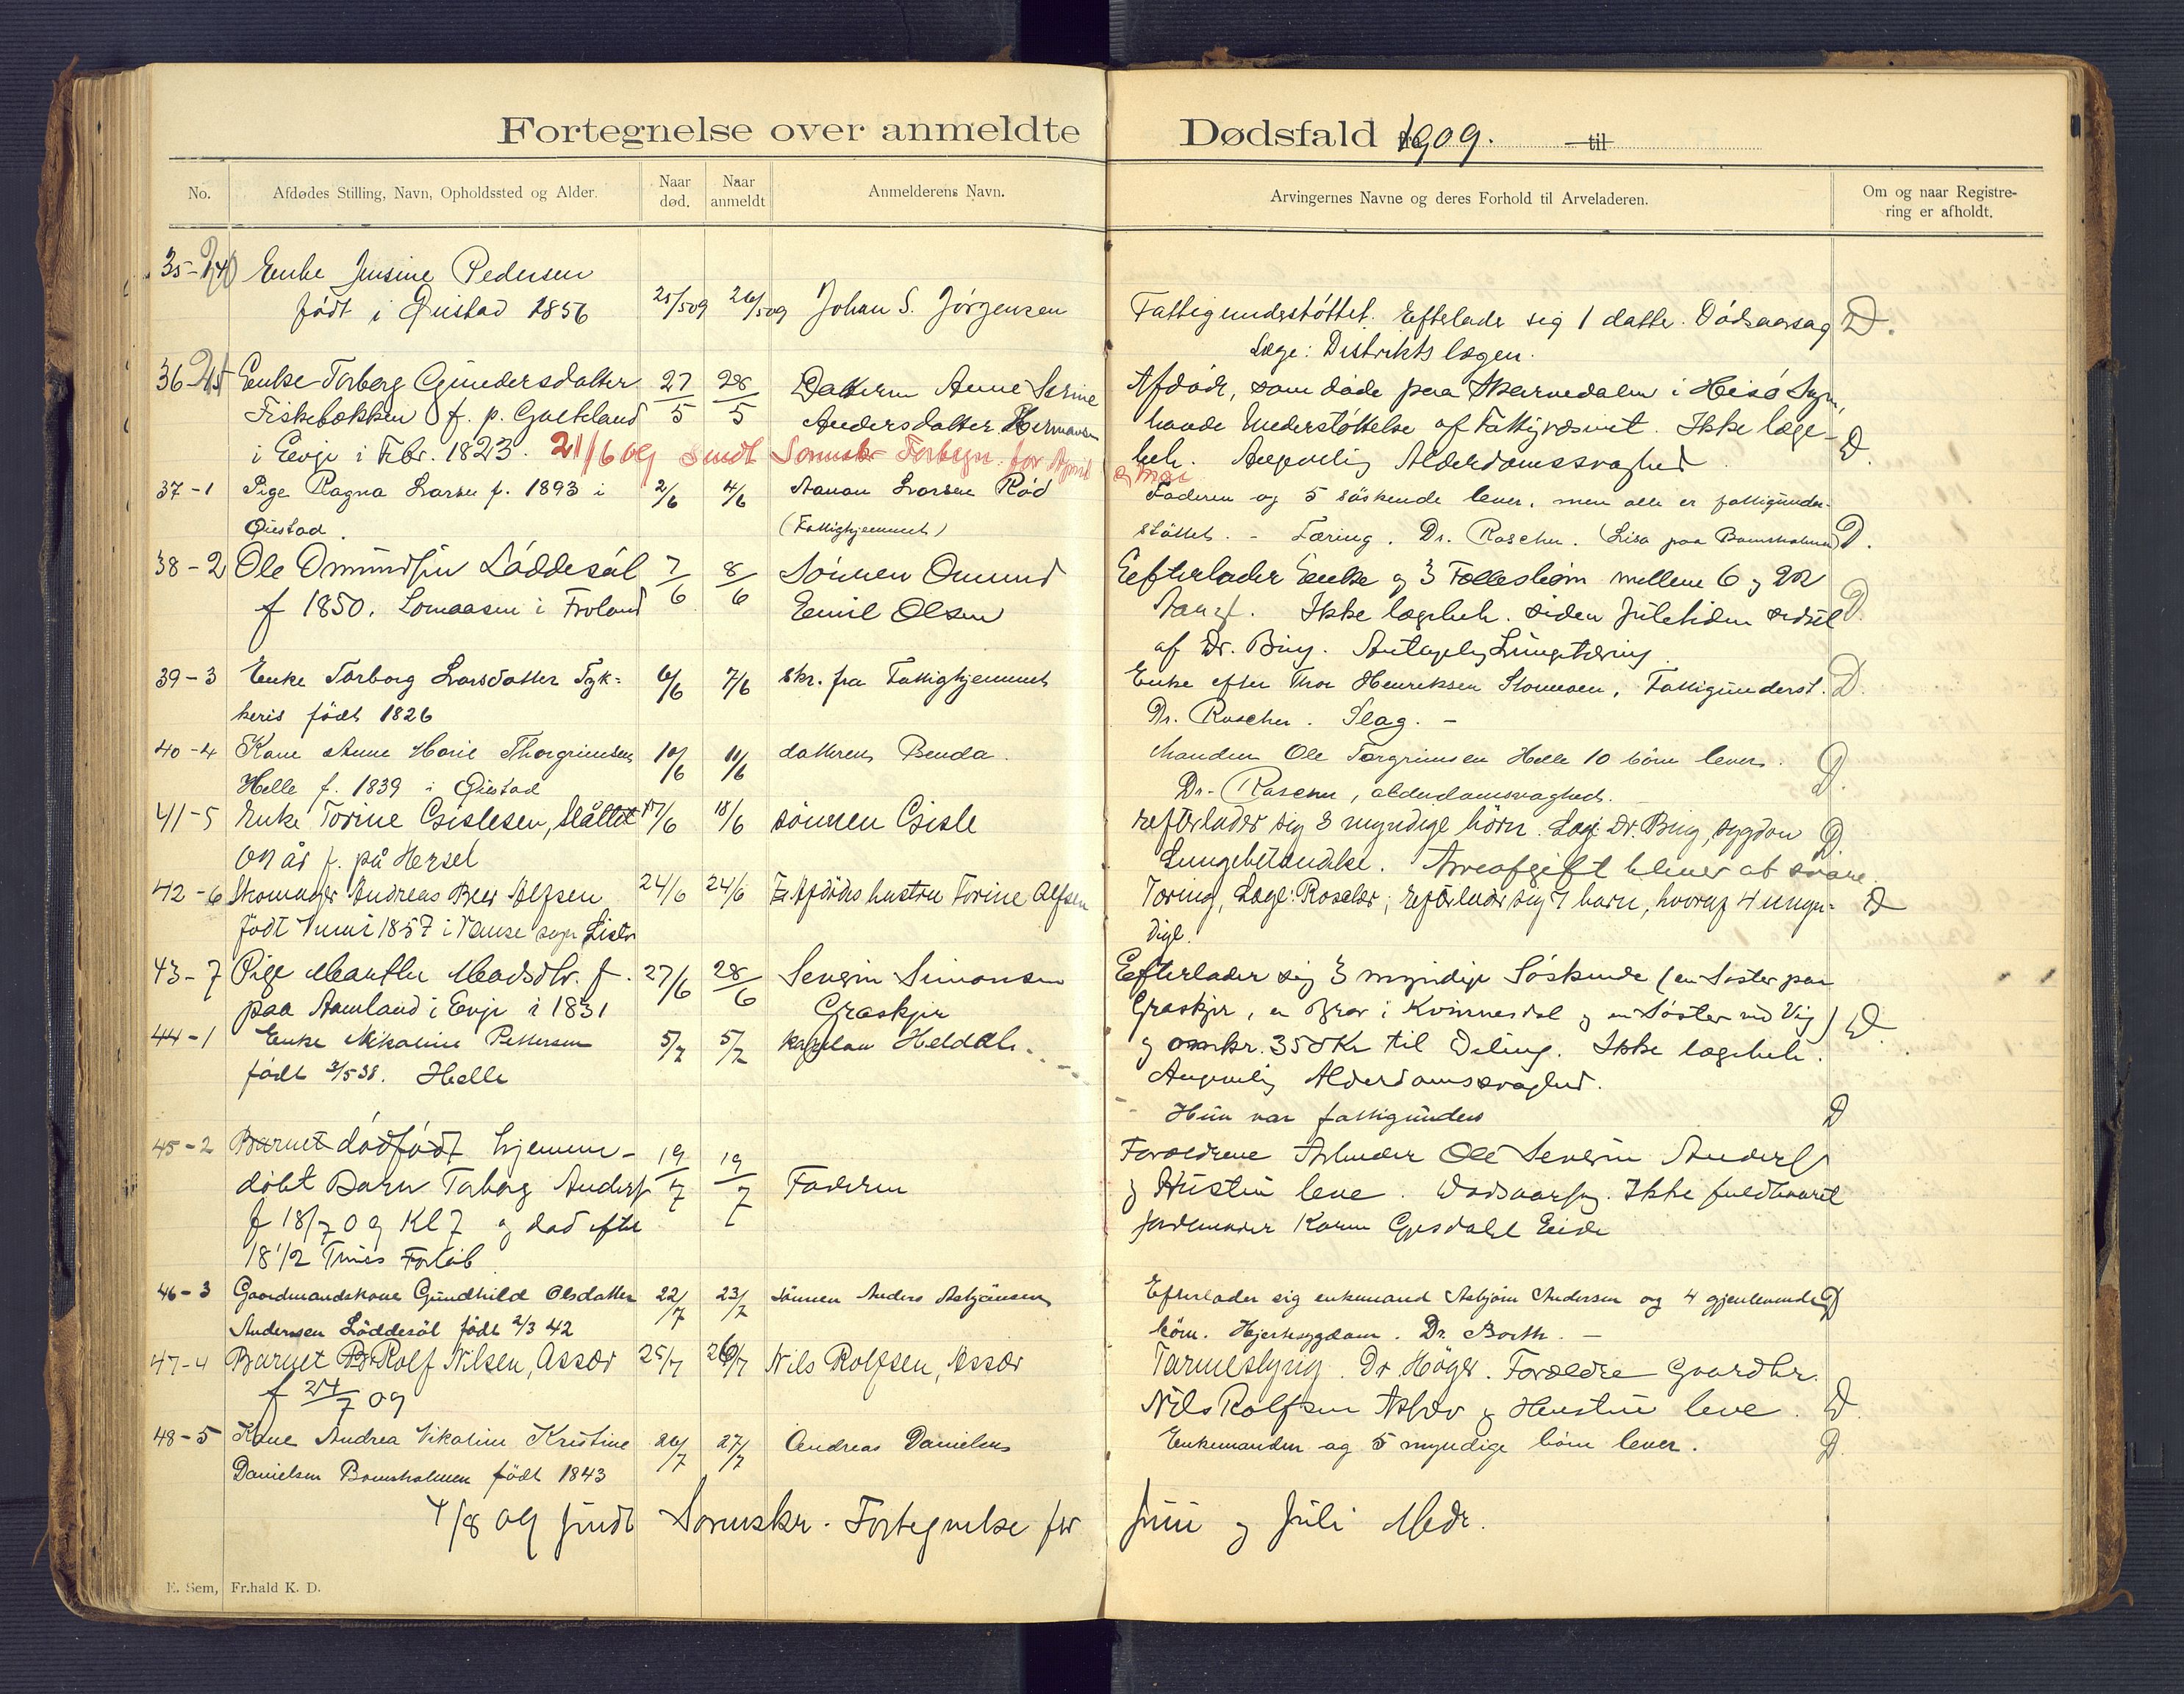 Fortegnelse over anmeldte Dødsfald 1909. til
No. Afdødes Stilling, Navn, Opholdssted og Alder. Naar død. Naar anmeldt Anmelderens Navn. Arvingernes Navne og deres Forhold til Arveladeren. Om og naar Registrering er afholdt.
35- Enke Jensine Pedersen
født i Øiestad 1856 25/5 09 26/5 09 Johan S. Jørgensen Fattigunderstøttet. Efterlader sig 1 datter. Dødsaarsag D.
Læge: Distriktslægen.
36 Enke Torborg Gundersdatter 27/5 28/5 Datteren Anne Serine Afdøde, som døde paa Skarvedalen i Hisø Sogn,
Fiskebækken f. p. Gauteland Andersdatter Hermansen havde Understøttelse af Fattigvæsenet. Ikke læge-
i Evje i Febr. 1823. 21/6 09 sendt Sorenskr Fortegn. for April og Mai beh. Angivelig Alderdomssvaghed. D.
37-1 Pige Ragna Larsen f. 1893 i 2/6 4/6 Aanon Larsen Rød Faderen og 5 søskende lever, men alle er fattigunder-
Øiestad. (Fattighjemmet) støttet. - Tæring. Dr. Roscher. (Lisa paa Bomsholmen) D.
38-2 Ole Omundsen Løddesøl 7/6 8/6 Sønnen Omund Efterlader Enke og 3 Fællesbørn mellem 6 og 22
f 1850. Lomaasen i Froland Emil Olsen Aar. Ikke lægebeh. siden Juletiden D.
af Dr. Bing. Antagelig Lungetæring.
39-3 Enke Torborg Larsdatter Tyk= 6/6 7/6 skr. fra Fattighjemmet Enke efter Thor Henriksen Stomoen, Fattigunderst. D.
keris født 1826 Dr. Roscher. Slag. -
40-4 Kone Anne Marie Thorgrimsen 10/6 11/6 datteren Benda. Manden Ole Torgrimsen Helle 10 børn lever. D.
Helle f. 1839 i Øiestad Dr. Roscher, alderdomssvaghed.
41-5 Enke Torine Gislesen, Slåttet 17/6 18/6 sønnen Gisle Efterlader sig 3 myndige børn. Læge Dr. Bing, sygdom D
år f. på Hersel Lungebetændelse. Arveafgift bliver at svare.
42-6 Skomager Andreas Beer Alfsen 24/6 24/6 Afdødes hustru Torine Alfsen Tæring, Læge: Roscher; Efterlader sig 7 barn, hvoraf 4 umyn- D
født Juni 1857 i Vanse sogn Lister dige.
43-7 Pige Marthe Madsdtr. f. 27/6 28/6 Severin Simonsen Efterlader sig 3 myndige Søskende (en Søster paa
paa Aamland i Evje i 1831 Graskjær Graskjær, en Bror i Kvinesdal og en Søster ved Vig) D.
44-1 Enke Nikoline Pettersen 5/7 5/7 kapelan Heldal. og omkr. 350 Kr til Deling. Ikke lægebeh.
født 2/5 38. Helle Angivelig Alderdomssvaghed.
Hun var fattigunders D
45-2 Barnet dødfødt hjemme- 19/7 19/7 Forældrene Arbeider Ole Severin Anders
døbt Barn Torborg Anders Faderen og Hustru leve. Dødsaarsag. Ikke fuldbaaret
f 18/7 09 Kl 7 og død efter Jordmoder Karen Gjesdahl Eide
18 1/2 Times Forløb.
46-3 Gaardmandskone Gundhild Olsdatter 22/7 23/7 sønnen Anders Asbjørnsen Efterlader sig enkemand Asbjørn Andersen og 4 gjenlevende D
Andersen Løddesøl født 2/3 42 børn. Hjertesygdom. Dr. Borth. -
47-4 Barnet Rolf Nilsen, Assær 25/7 26/7 Nils Rolfsen, Assær Tarmeslyng. Dr Høyer. Forældre Gaardbr.
f 24/7 09 Nils Rolfsen Assær og Hustru leve. D.
48-5 Kone Andrea Nikoline Kristine 26/7 27/7 Andreas Danielsen Enkemanden og 5 myndige børn lever. D.
Danielsen Bomsholmen født 1843
4/8 09 sendt Sorenskr. Fortegnelse for Juni og Juli Mdr.
E. Sem, Fr.hald K. D.